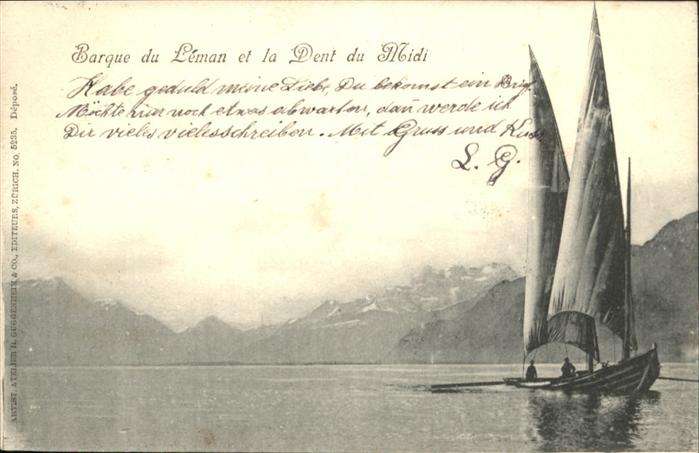 Barque du Léman et la Dent du Midi
Habe geduld meine Liebe, Du bekomst ein Brief
Möchte nur noch etwas abwarten, dan werde ich
Dir vieles vieles schreiben. Mit Gruss und Kuss
L. G.
ARTIST. ATELIER H. GUGGENHEIM & CO., EDITEURS, ZÜRICH. No. 5235. Déposé.